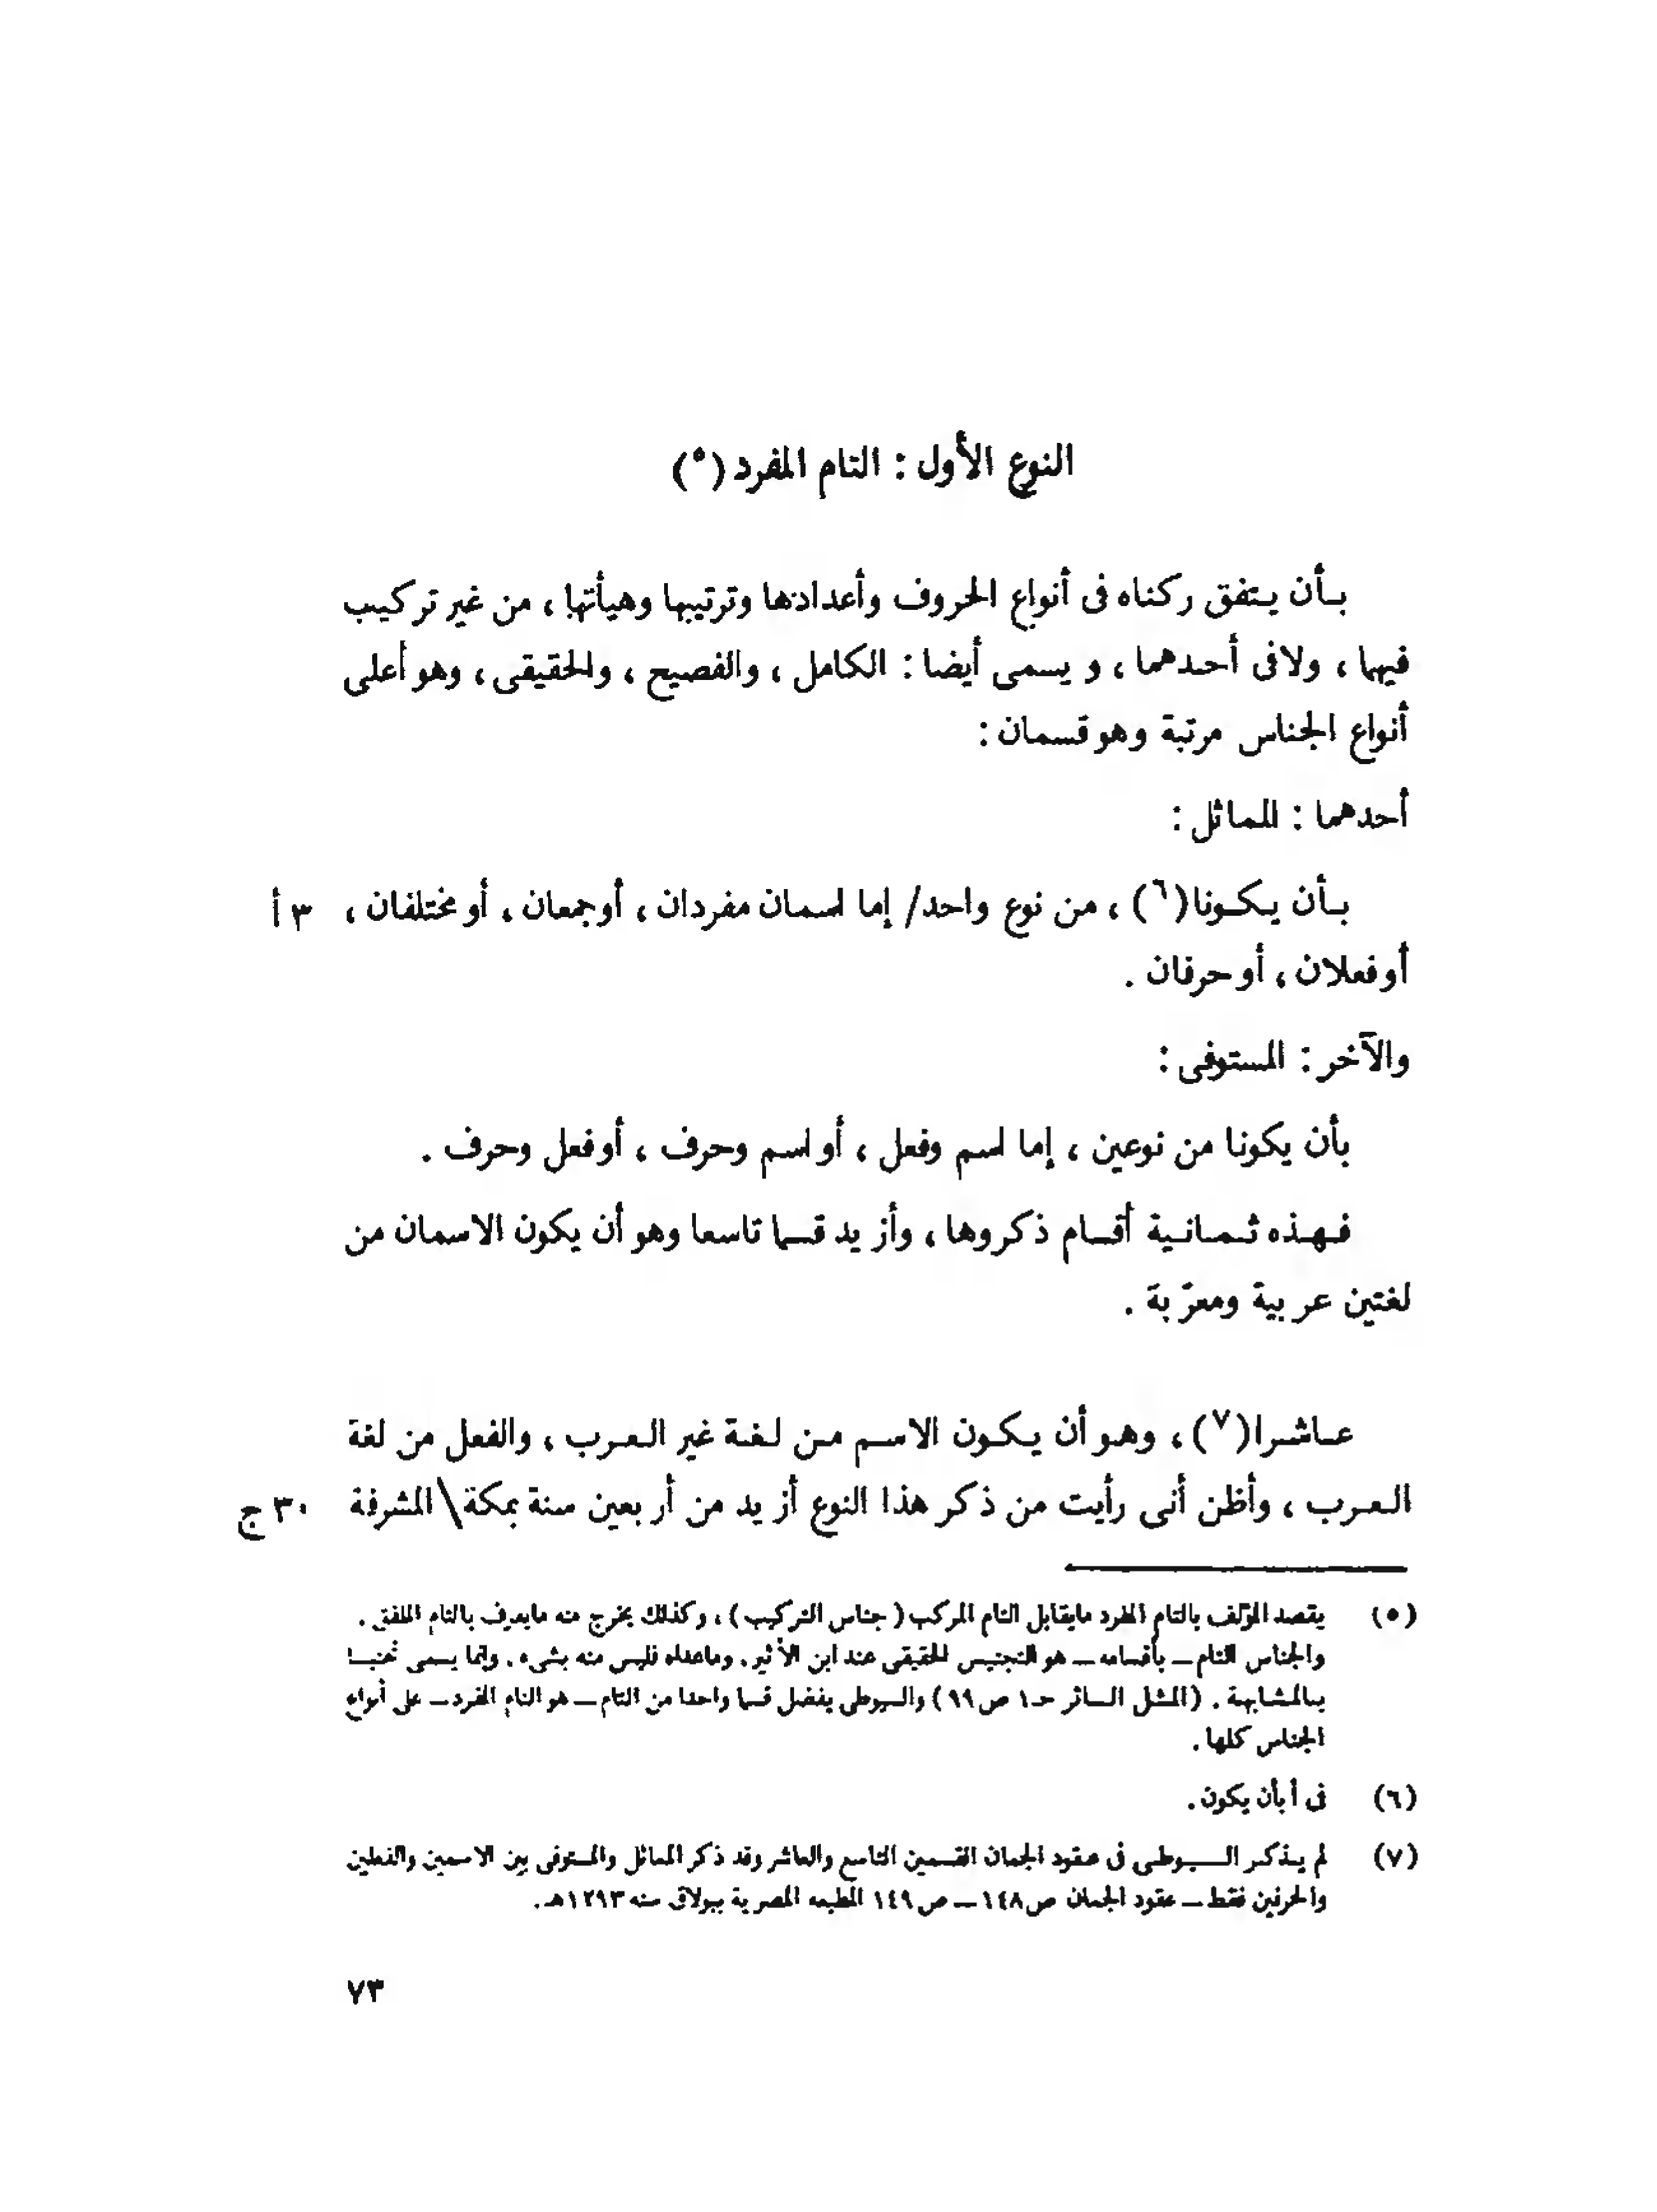 النوع الأول : التام المفرد (٥)
بأن يتفق ركناه فى أنواع الحروف وأعدادها وترتيبها وهيأتها ، من غير تركيب
فيهما ، ولا فى أحدهما ، ويسمى أيضا : الكامل ، والفصيح ، والحقيقى ، وهو أعلى
أنواع الجناس مرتبة وهو قسمان :
أحدهما : المماثل :
بأن يكونا(٦) ، من نوع واحد/ إما اسمان مفردان ، أو جمعان ، أو مختلفان ، ٣ أ
أو فعلان ، أو حرفان .
والآخر : المستوفى :
بأن يكونا من نوعين ، إما اسم وفعل ، أو اسم وحرف ، أو فعل وحرف .
فهذه ثمانية أقسام ذكروها ، وأزيد قسما تاسعا وهو أن يكون الاسمان من
لغتين عربية ومعرّبة .
عاشرا(٧) ، وهو أن يكون الاسم من لغة غير العرب ، والفعل من لغة
العرب ، وأظن أنى رأيت من ذكر هذا النوع أزيد من أربعين سنة بمكة\ المشرفة ٣٠ ج
(٥) يقصد المؤلف بالتام المفرد مايقابل التام المركب ( جناس التركيب ) ، وكذلك يخرج منه مايعرف بالتام الملفق .
والجناس التام ــ بأقسامه ــ هو التجنيس الحقيقى عند ابن الأثير . وماعداه فليس منه بشىء . وإنما يسمى تجنيسا
بالمشابهة . (المثل السائر حـ١ ص٩٩) والسيوطى يفضل قسما واحدا من التام ــ هو التام المفرد ــ على أنواع
الجناس كلها .
(٦) فى أ بأن يكون .
(٧) لم يذكر السيوطى فى عقود الجمان القسمين التاسع والعاشر وقد ذكر المماثل والمستوفى بين الاسمين والفعلين
والحرفين فقط ــ عقود الجمان ص١٤٨ ــ ص١٤٩ المطبعه المصرية ببولاق سنه ١٢٩٣هـ .
٧٣